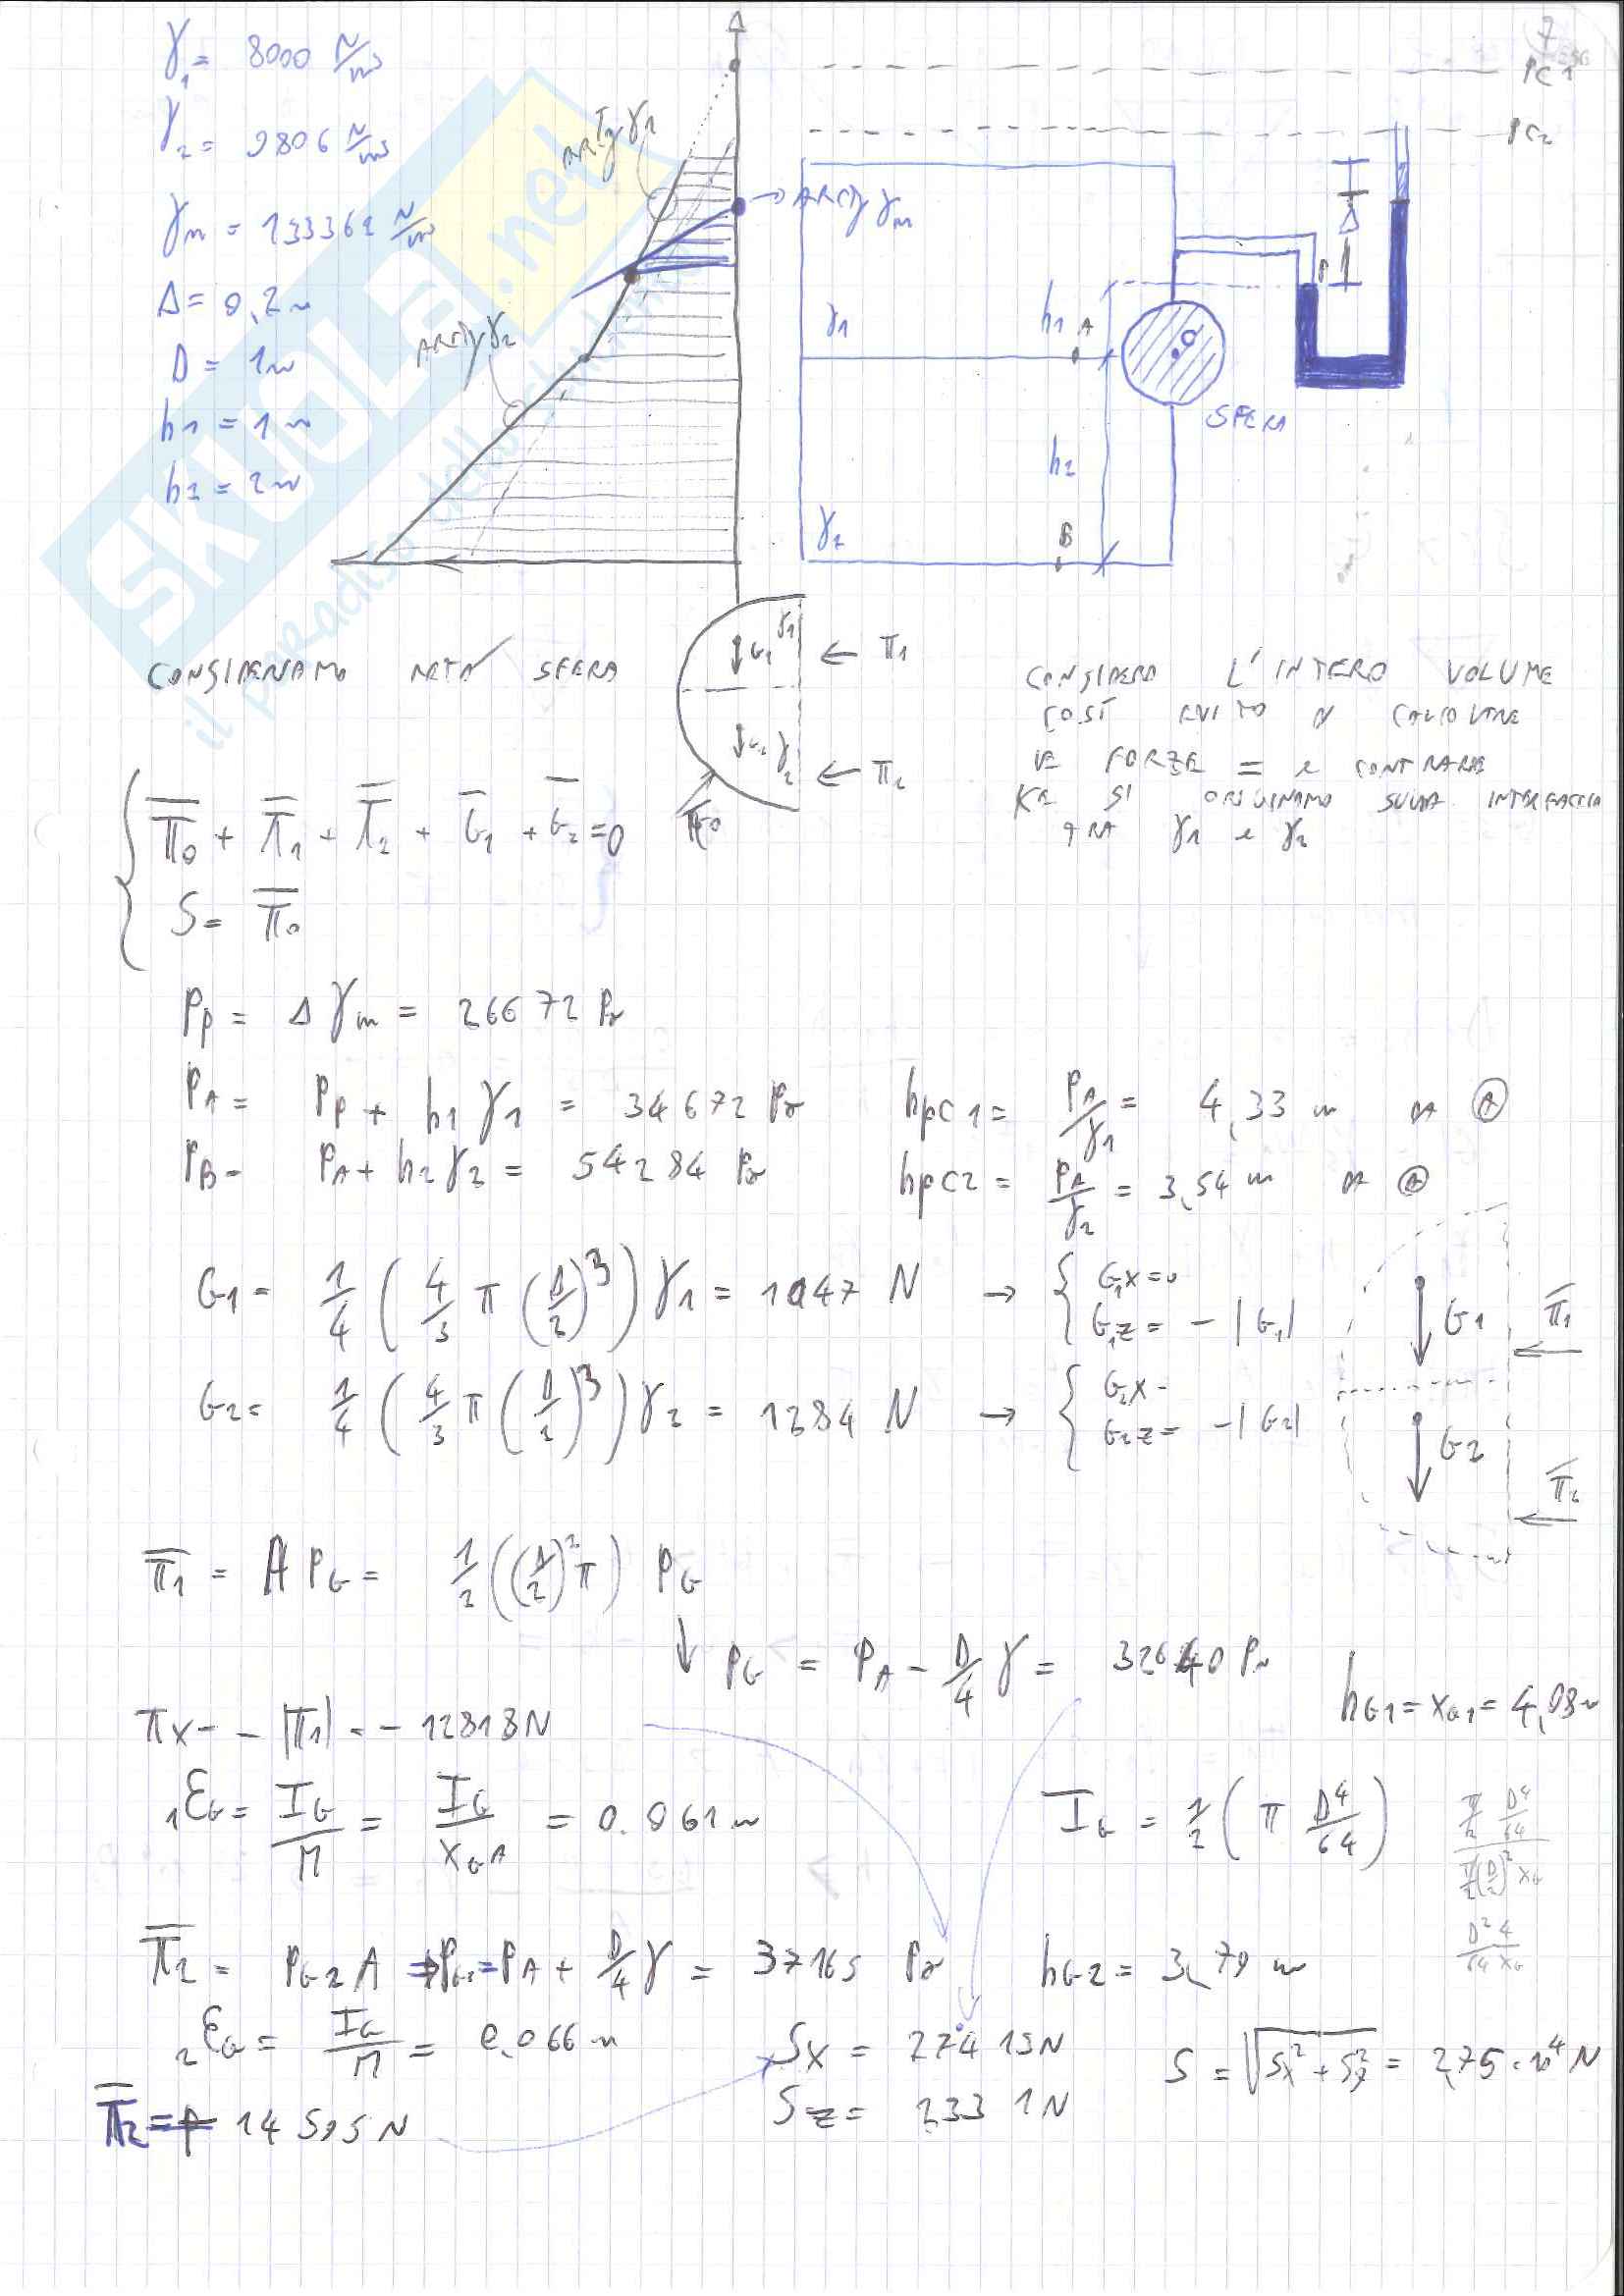 7
γ1 = 8000 N/m³
γ2 = 9806 N/m³
γm = 133362 N/m³
Δ = 0,2 m
D = 1 m
h1 = 1 m
h2 = 2 m
ARCTg γ1
ARCTg γm
ARCTg γ2
PC1
PC2
Δ
P
γ1
h1
A
G
SFERA
h2
γ2
B
SKUOLA.net
il paradiso dello
CONSIDERIAMO METÀ SFERA
G1 γ1
← Π1
G2 γ2
← Π2
Π0
CONSIDERO L'INTERO VOLUME
COSÌ EVITO DI CALCOLARE
LE FORZE = e CONTRARIE
KE SI ORIGINANO SULLA INTERFACCIA
TRA γ1 e γ2
Π0 + Π1 + Π2 + G1 + G2 = 0
S = Π0
PP = Δ γm = 26672 Pa
PA = PP + h1 γ1 = 34672 Pa hpc1 = PA/γ1 = 4,33 m DA A
PB = PA + h2 γ2 = 54284 Pa hpc2 = PA/γ2 = 3,54 m DA A
G1 = 1/4 (4/3 π (D/2)³) γ1 = 1047 N → { G1x = 0
G1z = - |G1|
G2 = 1/4 (4/3 π (D/2)³) γ2 = 1284 N → { G2x -
G2z = - |G2|
G1
Π1
G2
Π2
Π1 = A PG = 1/2 ((D/2)² π) PG
↓ PG = PA - D/4 γ = 32640 Pa
hG1 = xG1 = 4,08 m
Πx = - |Π1| = - 12818 N
1εG = IG/M = IG/xG A = 0.061 m
IG = 1/2 (π D⁴/64)
π/2 D⁴/64
π/2 (D/2)² xG
D² 4
64 xG
Π2 = PG2 A ⇒ PG2 = PA + D/4 γ = 37165 Pa hG2 = 3,79 m
2εG = IG/M = 0,066 m
Sx = 27413 N
S = √Sx² + Sz² = 2,75 · 10⁴ N
Sz = 2331 N
Π2 = 14595 N